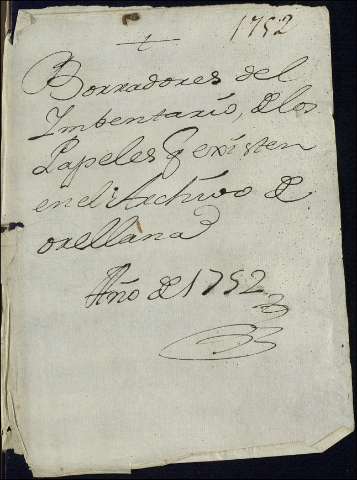 1752
Borradores del
Imbentario, de los
Papeles q existen
en el Archivo de
orellana
Año de 1752